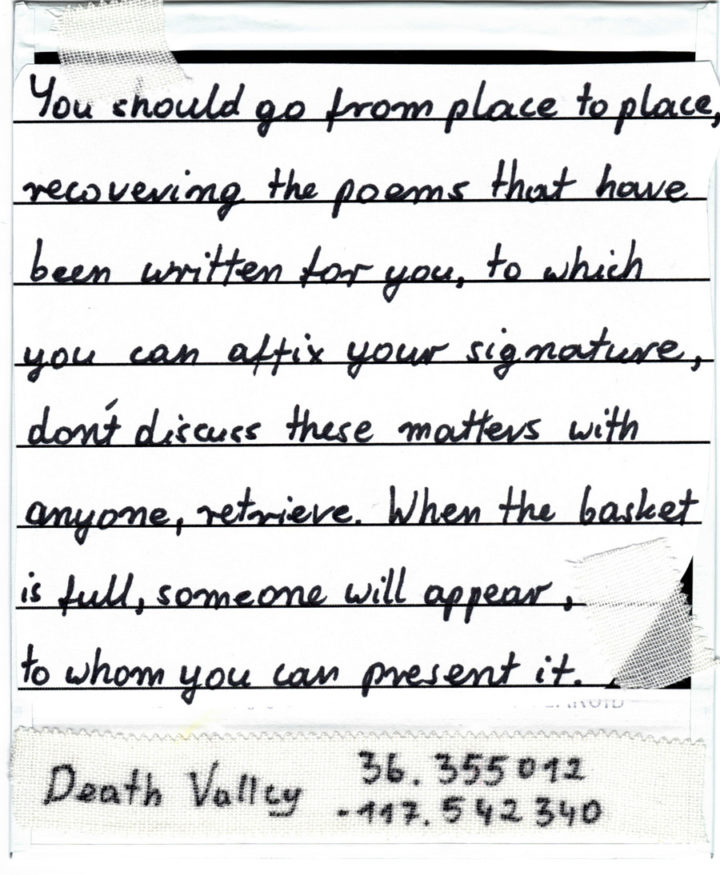 You should go from place to place,
recovering the poems that have
been written for you, to which
you can affix your signature,
don't discuss these matters with
anyone, retrieve. When the basket
is full, someone will appear,
to whom you can present it.
Death Valley 36.355012
-117.542340